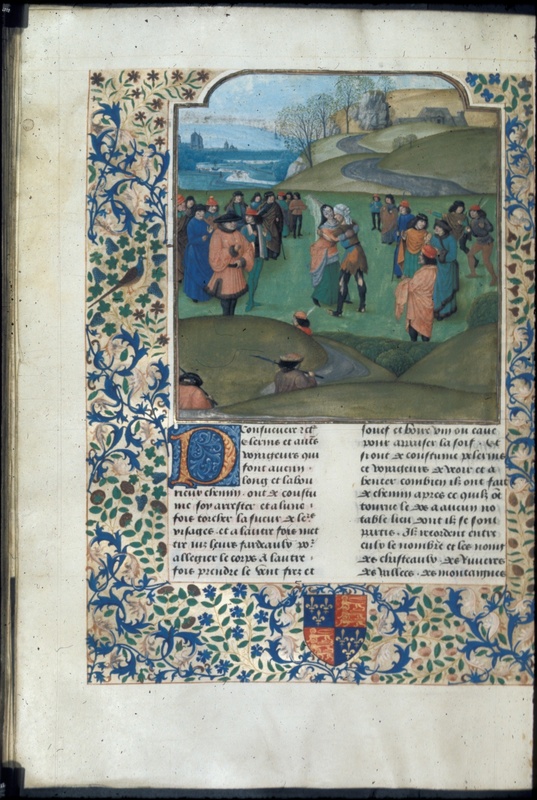 De
lerins et autres
voiageurs qui
font aucun
long et labou
rieux chemin ont de coustu
me soy arrester et a lune
fois torcher la sueur de le's
visages et a lautre fois met
tre ius leurs fardeaulx po'
allegier le corps a lautre
fois prendre le vent frez et
souef et boire vin ou eaue
pour apaiser la soif. et
si ont de coustume pelerins
et voiageurs de veoir et a
compter combien ilz ont fait
de chemin apres ce quilz ont
tourne le dos a aucun no
table lieu dont ilz se sont
partis. Ilz recordent entre
eulx le nombre et les noms
des chasteaulx des riuieres
des villes des montaignes